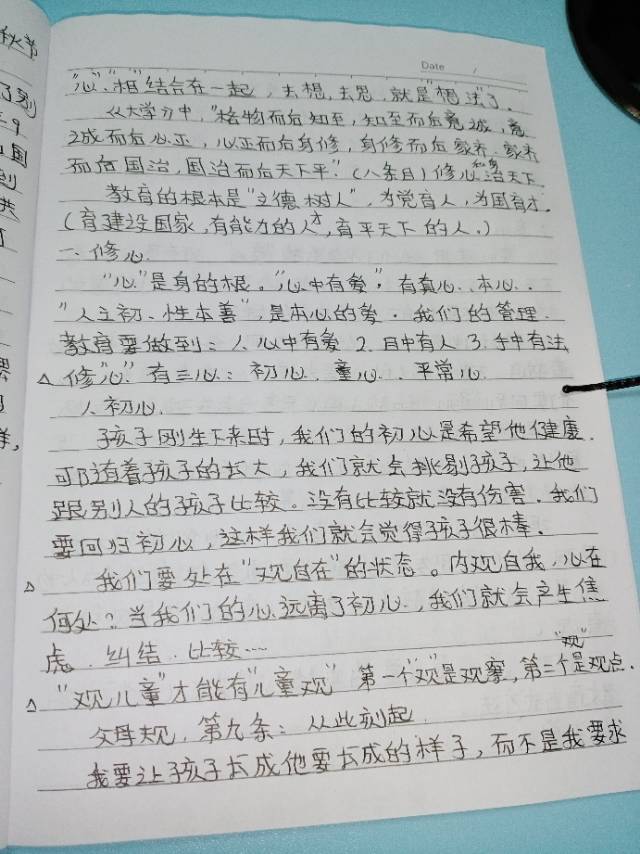 秋节
Date /
"心"、"相"结合在一起，去想，去思，就是"想"法了。
从大学分中，"格物而后知至，知至而后意诚，意
诚而后心正，心正而后身修，身修而后家齐，家齐
而后国治，国治而后天下平。"(八条目)修心和身治天下。
教育的根本是"立德树人"，为党育人，为国育才。
(育建设国家，有能力的人才，育平天下的人。)
一、修心
"心"是身的根。"心中有爱"，有真心、本心。
"人之初、性本善"，是本心的爱。我们的管理．
教育要做到：1、心中有爱 2. 目中有人 3. 手中有法
△ 修"心"有三心：初心、童心、平常心
1、初心．
孩子刚生下来时，我们的初心是希望他健康．
可随着孩子的长大，我们就会挑剔孩子，让他
跟别人的孩子比较。没有比较就没有伤害．我们
要回归初心，这样我们就会觉得孩子很棒．
△ 我们要处在"观自在"的状态。内观自我，心在
何处？当我们的心远离了初心，我们就会产生焦
虑、纠结、比较……
△ "观儿童"才能有"儿童观" 第一个"观"是观察，第二个"观"是观点．
父母规，第九条：从此刻起
我要让孩子长成他要长成的样子，而不是我要求